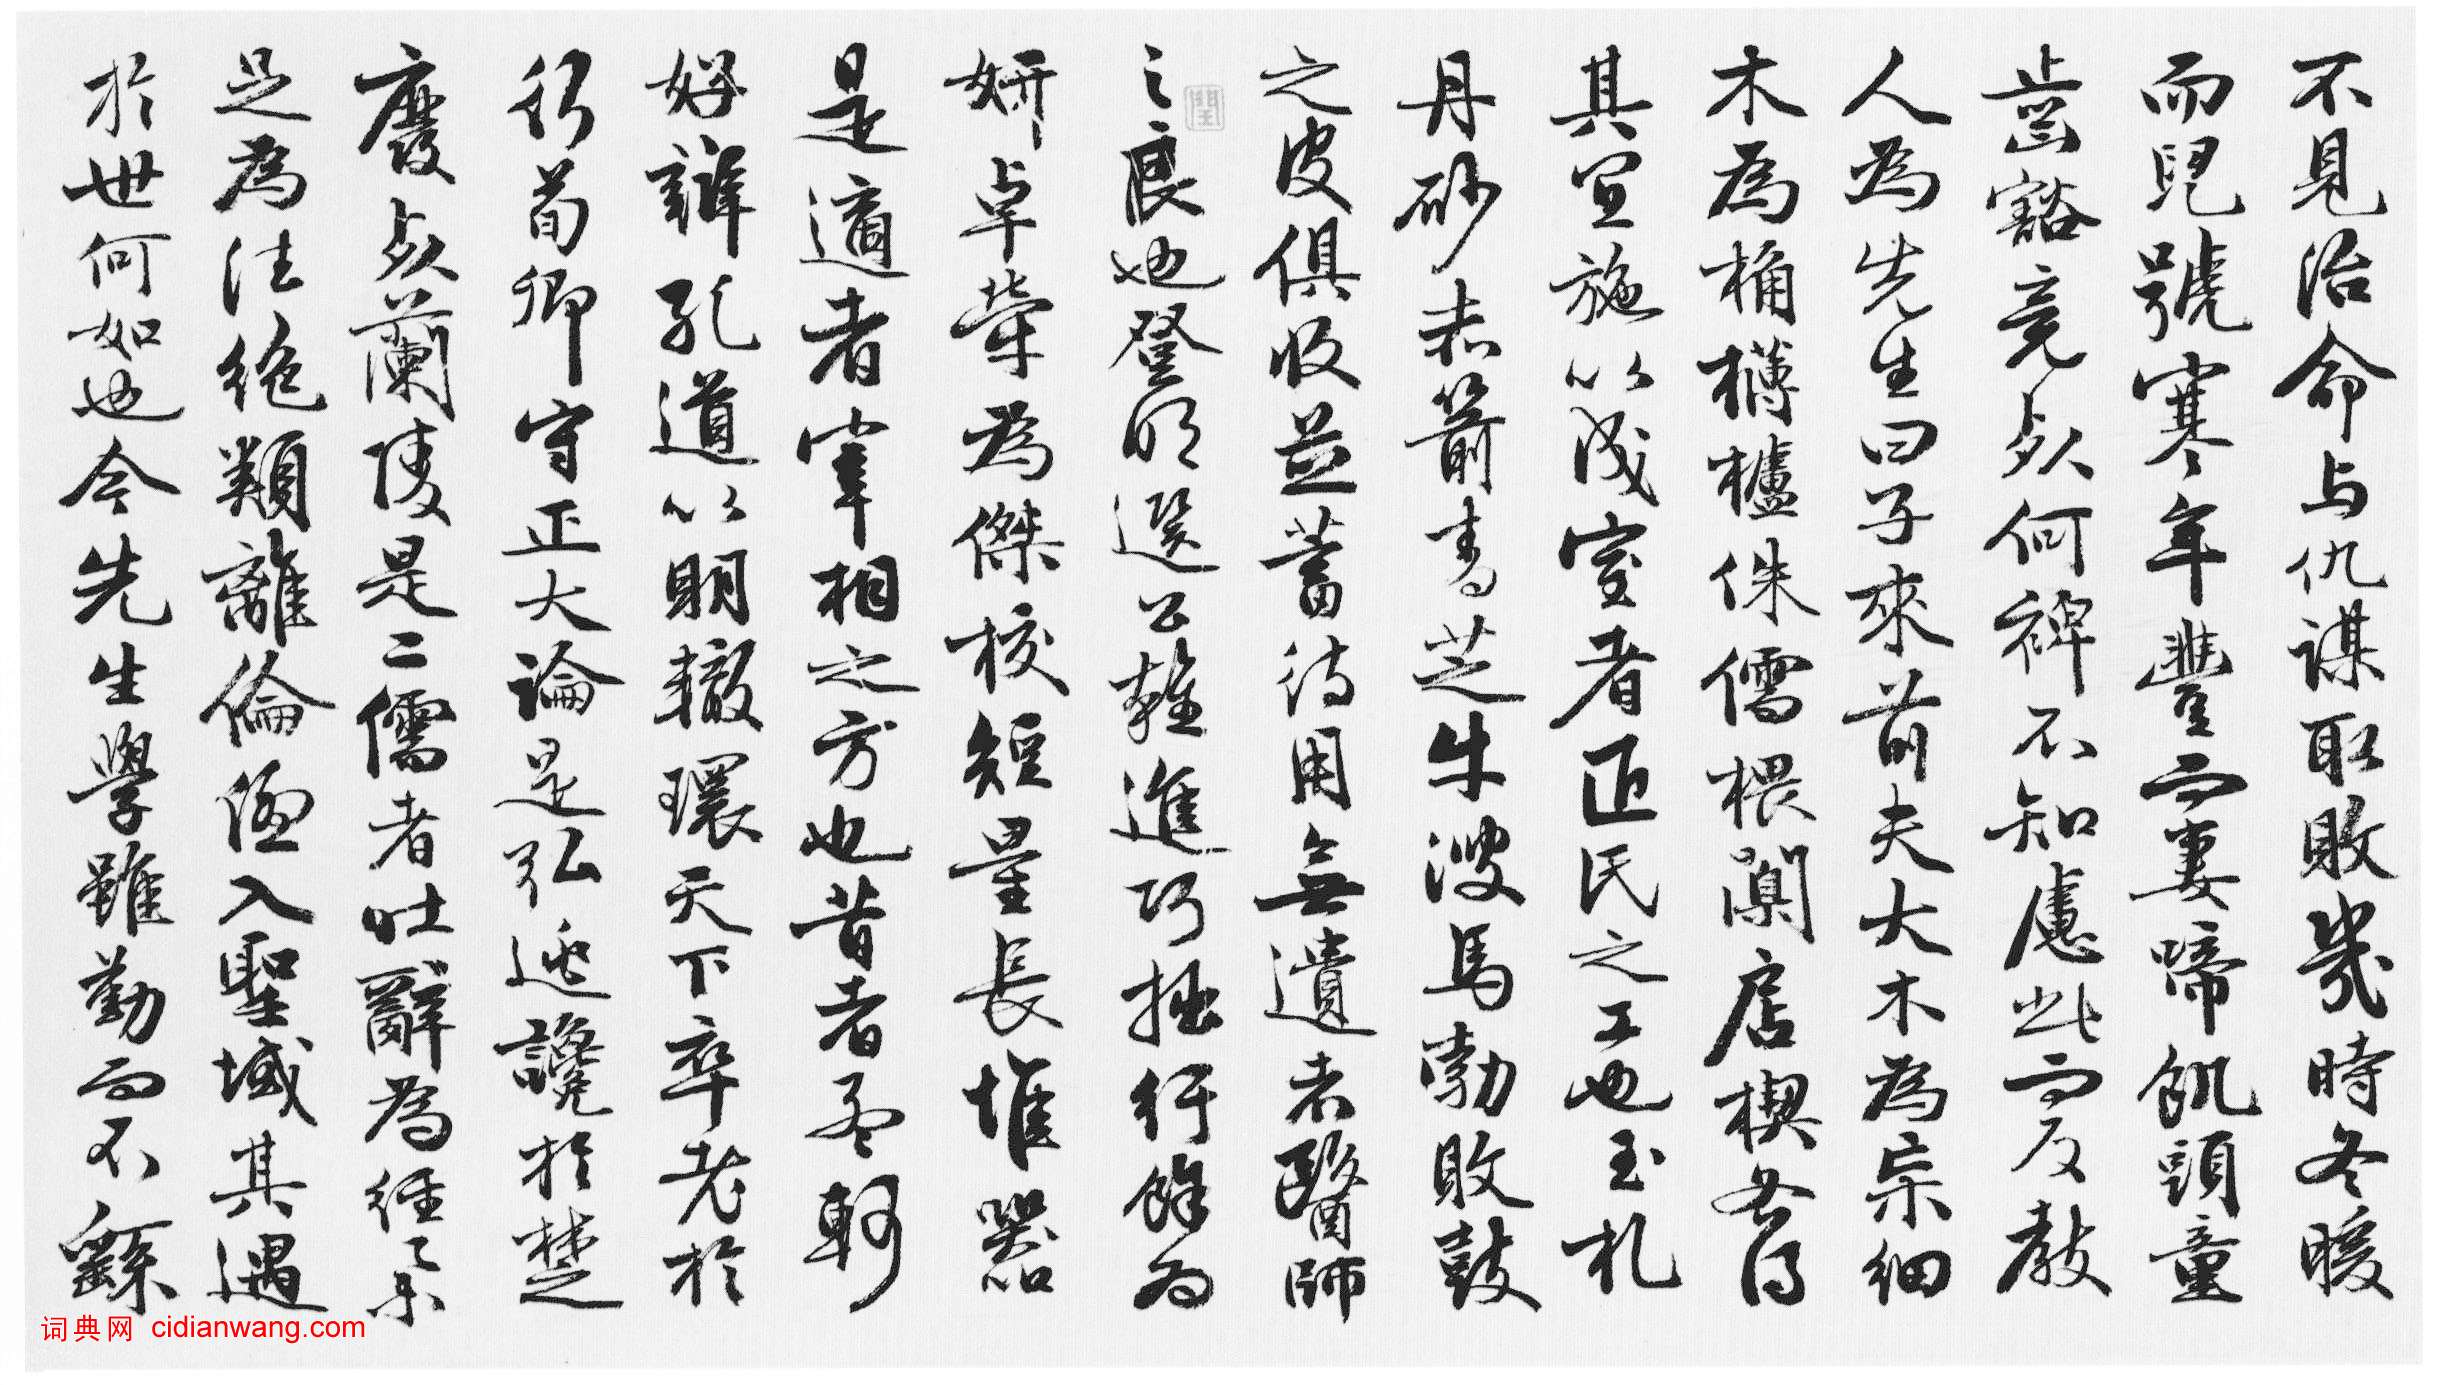 不見治命与仇謀取敗幾時冬暖
而兒號寒年豐而妻啼飢頭童
齒豁竟死何裨不知慮此而反教
人為先生曰子來前夫大木為杗細
木為桷欂櫨侏儒椳闑扂楔各得
其宜施以成室者匠民之工也玉札
丹砂赤箭青芝牛溲馬勃敗鼓
之皮俱收並蓄待用無遺者醫師
之良也登明選公雜進巧拙紆餘為
妍卓犖為傑校短量長惟器
是適者宰相之方也昔者孟軻
好辯孔道以明轍環天下卒老於
行荀卿守正大論是弘逃讒於楚
廢死蘭陵是二儒者吐辭為經舉
足為法絕類離倫優入聖域其遇
於世何如也今先生學雖勤而不繇
词典网 cidianwang.com